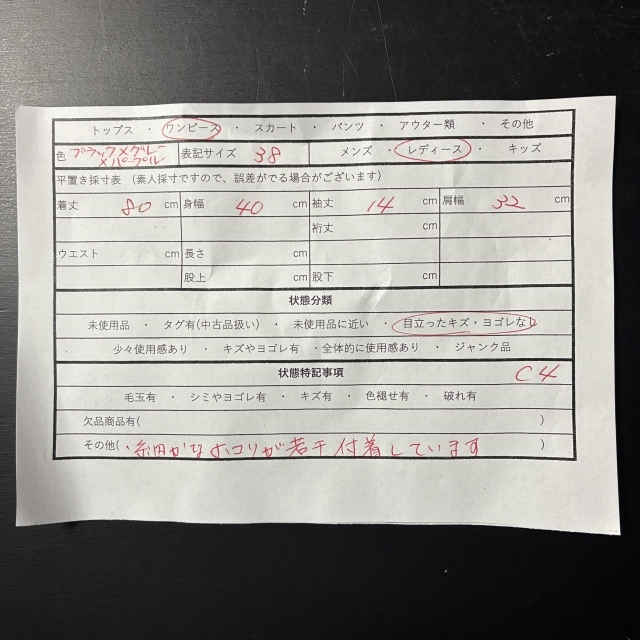 トップス ・ ワンピース ・ スカート ・ パンツ ・ アウター類 ・ その他
色 ブラック×グレー×パープル 表記サイズ 38 メンズ ・ レディース ・ キッズ
平置き採寸表 (素人採寸ですので、誤差がでる場合がございます)
着丈 80 cm 身幅 40 cm 袖丈 14 cm 肩幅 32 cm
裄丈 cm
ウエスト cm 長さ cm
股上 cm 股下 cm
状態分類
未使用品 ・ タグ有(中古品扱い) ・ 未使用品に近い ・ 目立ったキズ・ヨゴレなし
少々使用感あり ・ キズやヨゴレ有 ・全体的に使用感あり ・ ジャンク品
状態特記事項 C4
毛玉有 ・ シミやヨゴレ有 ・ キズ有 ・ 色褪せ有 ・ 破れ有
欠品商品有( )
その他(・細かなホコリが若干付着しています )